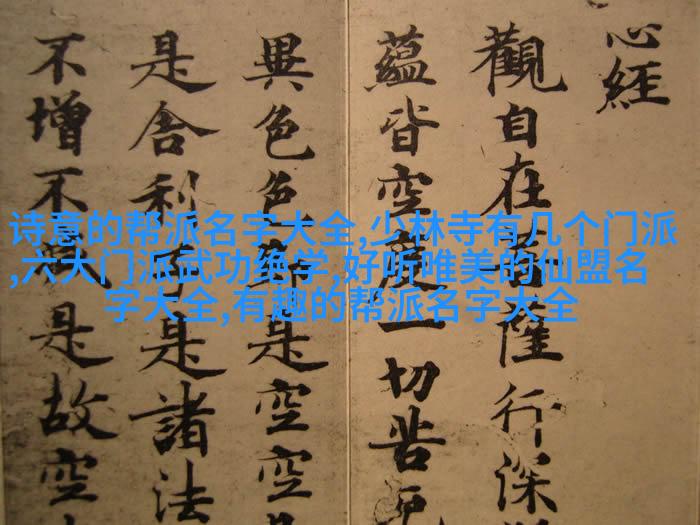 诗意的帮派名字大全,少林寺有几个门派
,六大门派武功绝学,好听唯美的仙盟名
字大全,有趣的帮派名字大全
心經
觀自在菩薩行深
蘊皆空度一切苦厄
異色色即是空空
是舍利子是諸法
不增不減是故空